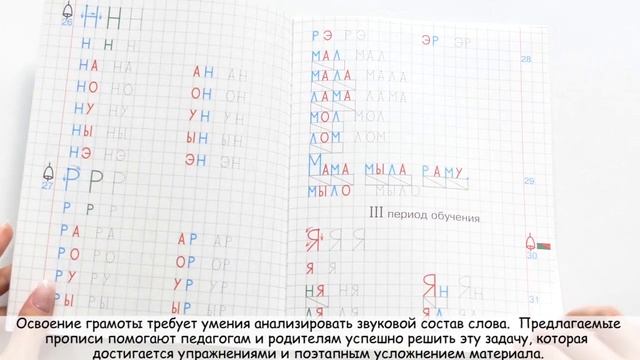 26 Н Н Н
Н Н Н
НА НА АН АН
НО НО ОН ОН
НУ НУ УН УН
НЫ НЫ ЫН ЫН
НЭ НЭ ЭН ЭН
27 Р Р Р
Р Р Р
РА РА АР АР
РО РО ОР ОР
РУ РУ УР УР
РЫ РЫ ЫР ЫР
РЭ РЭ ЭР ЭР
28
МАЛ МАЛ
МАЛА МАЛА
ЛАМА ЛАМА
МОЛ МОЛ
ЛОМ ЛОМ
МАМА МЫЛА РАМУ.
29
МЫЛО МЫЛО
III период обучения
Я Я Я
30
Я Я
НЯ НЯ ЯН ЯН
31
Освоение грамоты требует умения анализировать звуковой состав слова. Предлагаемые
прописи помогают педагогам и родителям успешно решить эту задачу, которая
достигается упражнениями и поэтапным усложнением материала.